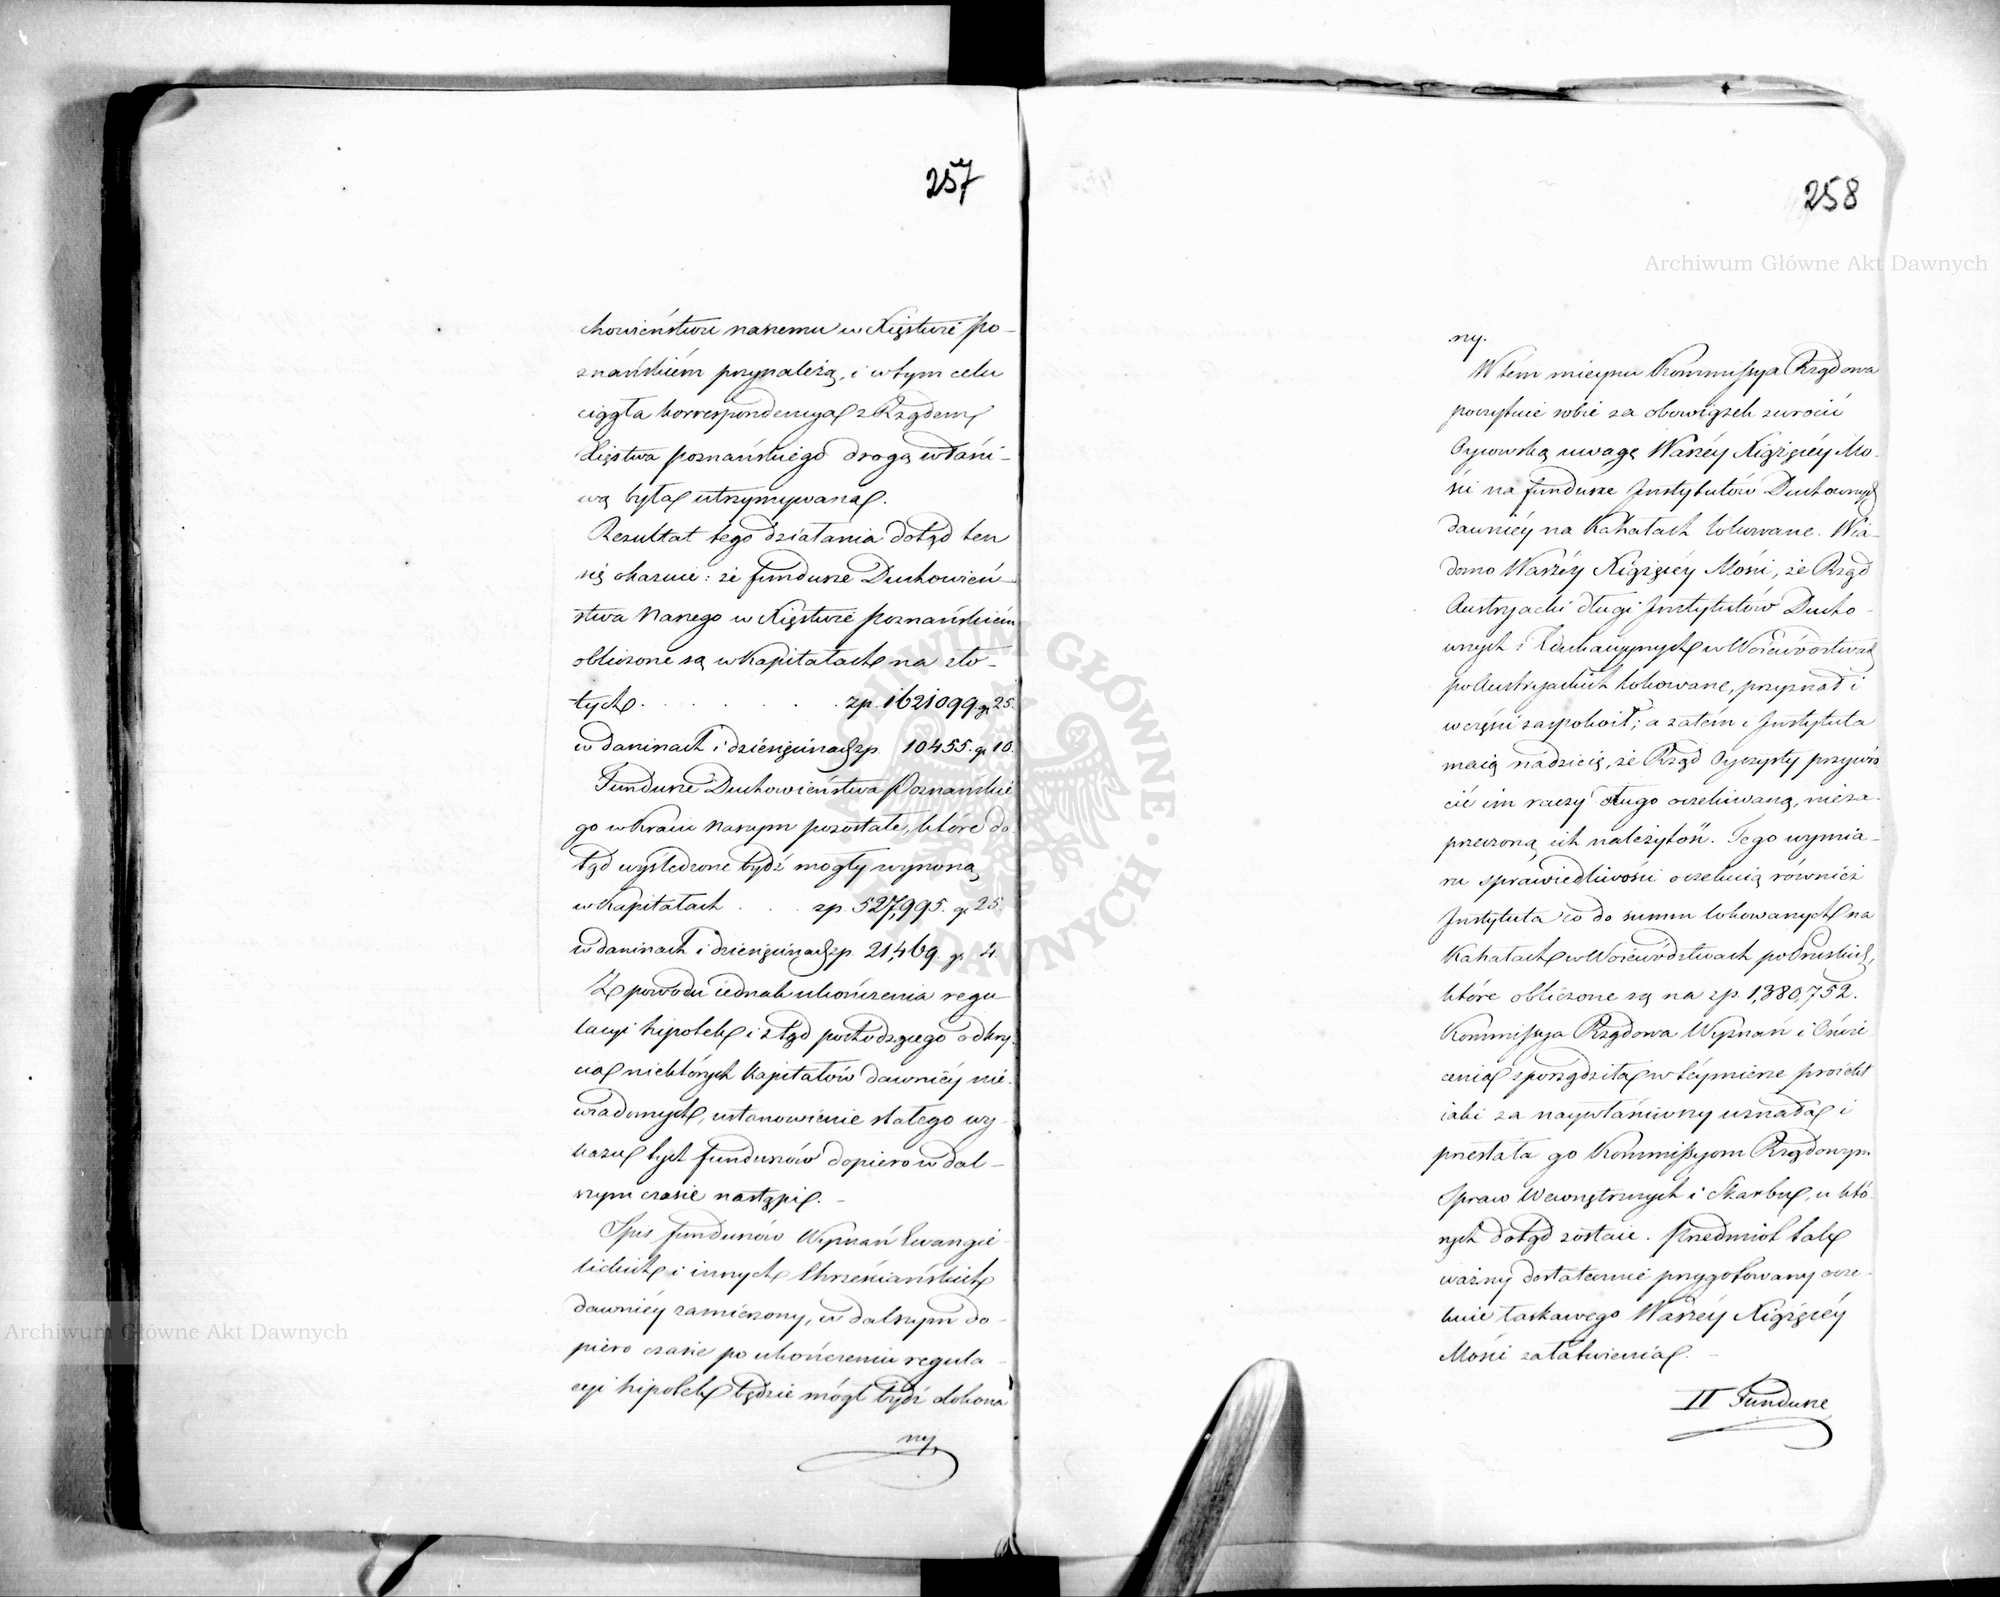 257
chowieństwu naszemu w Xięstwie Po-
znańskiém przynależą, i w tym celu
ciągła korrespondencya z Rządem
Xięstwa Poznańskiego drogą właści-
wą była utrzymywana.
Rezultat tego działania dotąd ten
się okazuie: że fundusze Duchowień-
stwa Naszego w Xięstwie Poznańskiém
obliczone są w Kapitałach na zło-
tych . . . . . . zp. 1621099 gr 25.
w daninach i dziesięcinach zp. 10455. gr 10.
Fundusze Duchowieństwa Poznańskie
go w Kraiu naszym pozostałe, które do
tąd wyśledzone bydź mogły wynoszą
w Kapitałach . . . zp. 527,995. gr 25.
w daninach i dziesięcinach zp. 21,469. gr 4.
Z powodu iednak ukończenia regu-
lacyi hipotek i ztąd pochodzącego odkry-
cia niektórych Kapitałów dawniéy nie-
wiadomych, ustanowienie stałego wy-
kazu tych funduszów dopiero w dal-
szym czasie nastąpi. -
Spis funduszów Wyznań Ewangie-
lickich i innych Chrześciańskich
dawniéy zamierzony, w dalszym do-
piero czasie po ukończeniu regula-
cyi hipotek będzie mógł bydź dokona
ny
258
ny.
W tém mieyscu Kommissya Rządowa
poczytuie sobie za obowiązek zwrócić
Oycowską uwagę Waszéy Xiążęcéy Mo-
ści na fundusze Instytutów Duchownych
dawniéy na Kahałach lokowane. Wia-
domo Waszéy Xiążęcéy Mości, że Rząd
Austryacki długi Instytutów Ducho-
wnych i Edukacyynych w Woiewództwach
po Austryackich lokowane, przyznał i
w części zaspokoił; a zatém i Instytuta
maią nadzieię, że Rząd Oyczysty przywró
cić im raczy długo oczekiwaną, nieza-
przeczoną ich należytość. Tego wymia-
ru sprawiedliwości oczekuią również
Instytuta co do summ lokowanych na
Kahałach w Woiewództwach po Pruskich,
które obliczone są na zp. 1,380,752.
Kommissya Rządowa Wyznań i Oświe
cenia sporządziła w téymierze proiekt
iaki za naywłaściwszy uznała i
przesłała go Kommissyom Rządowym
Spraw Wewnętrznych i Skarbu, u któ-
rych dotąd zostaie. Przedmiot tak
ważny dostatecznie przygotowany ocze-
kuie łaskawego Waszéy Xiążęcéy
Mości załatwienia. -
II Fundusze
Archiwum Główne Akt Dawnych
Archiwum Główne Akt Dawnych
ARCHIWUM GŁÓWNE AKT DAWNYCH